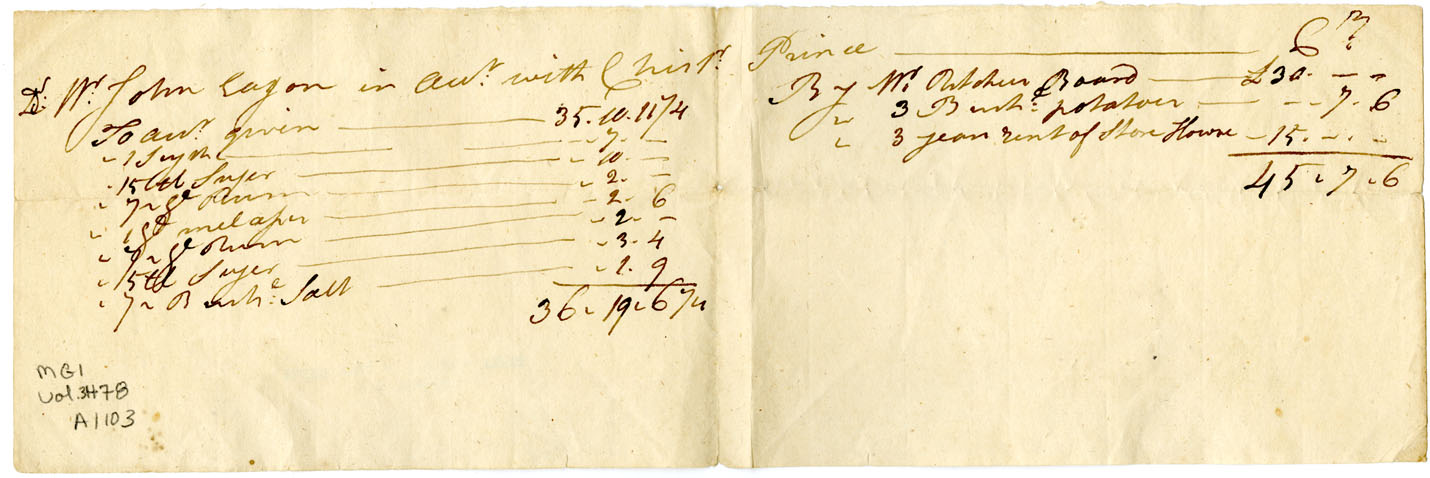 Dr. Mr John Eagon in Acct with Christr Prince Cr
To acct given 35.10.11 1/4
" 1 Scythe " 7. –
" 15 lb Suger " 10. –
" 7 " gl Rum " 2. –
" 1 gl melases – 2. 6
" gl Rum " 2. –
" 5 lb Suger " 3. 4
" 7 " Bushs Salt " 1. 9
36 " 19 " 6 1/4
By Mr Pitcher Board £30. – –
" 3 Bushs potatoes – – 7. 6
" 3 years rent of Store House – 15. – . –
45 " 7 " 6
MG1
Vol. 3478
A1103